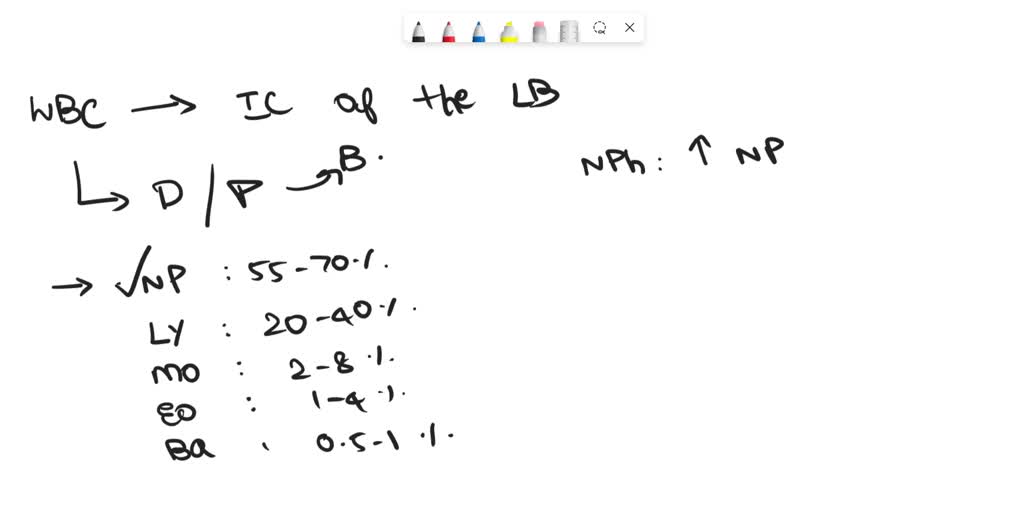 WBC → IC of the LB
↳ D / P → B.
NPh: ↑ NP
→ ✓NP : 55-70%.
LY : 20-40%.
mo : 2-8%.
EO : 1-4%.
Ba : 0.5-1%.